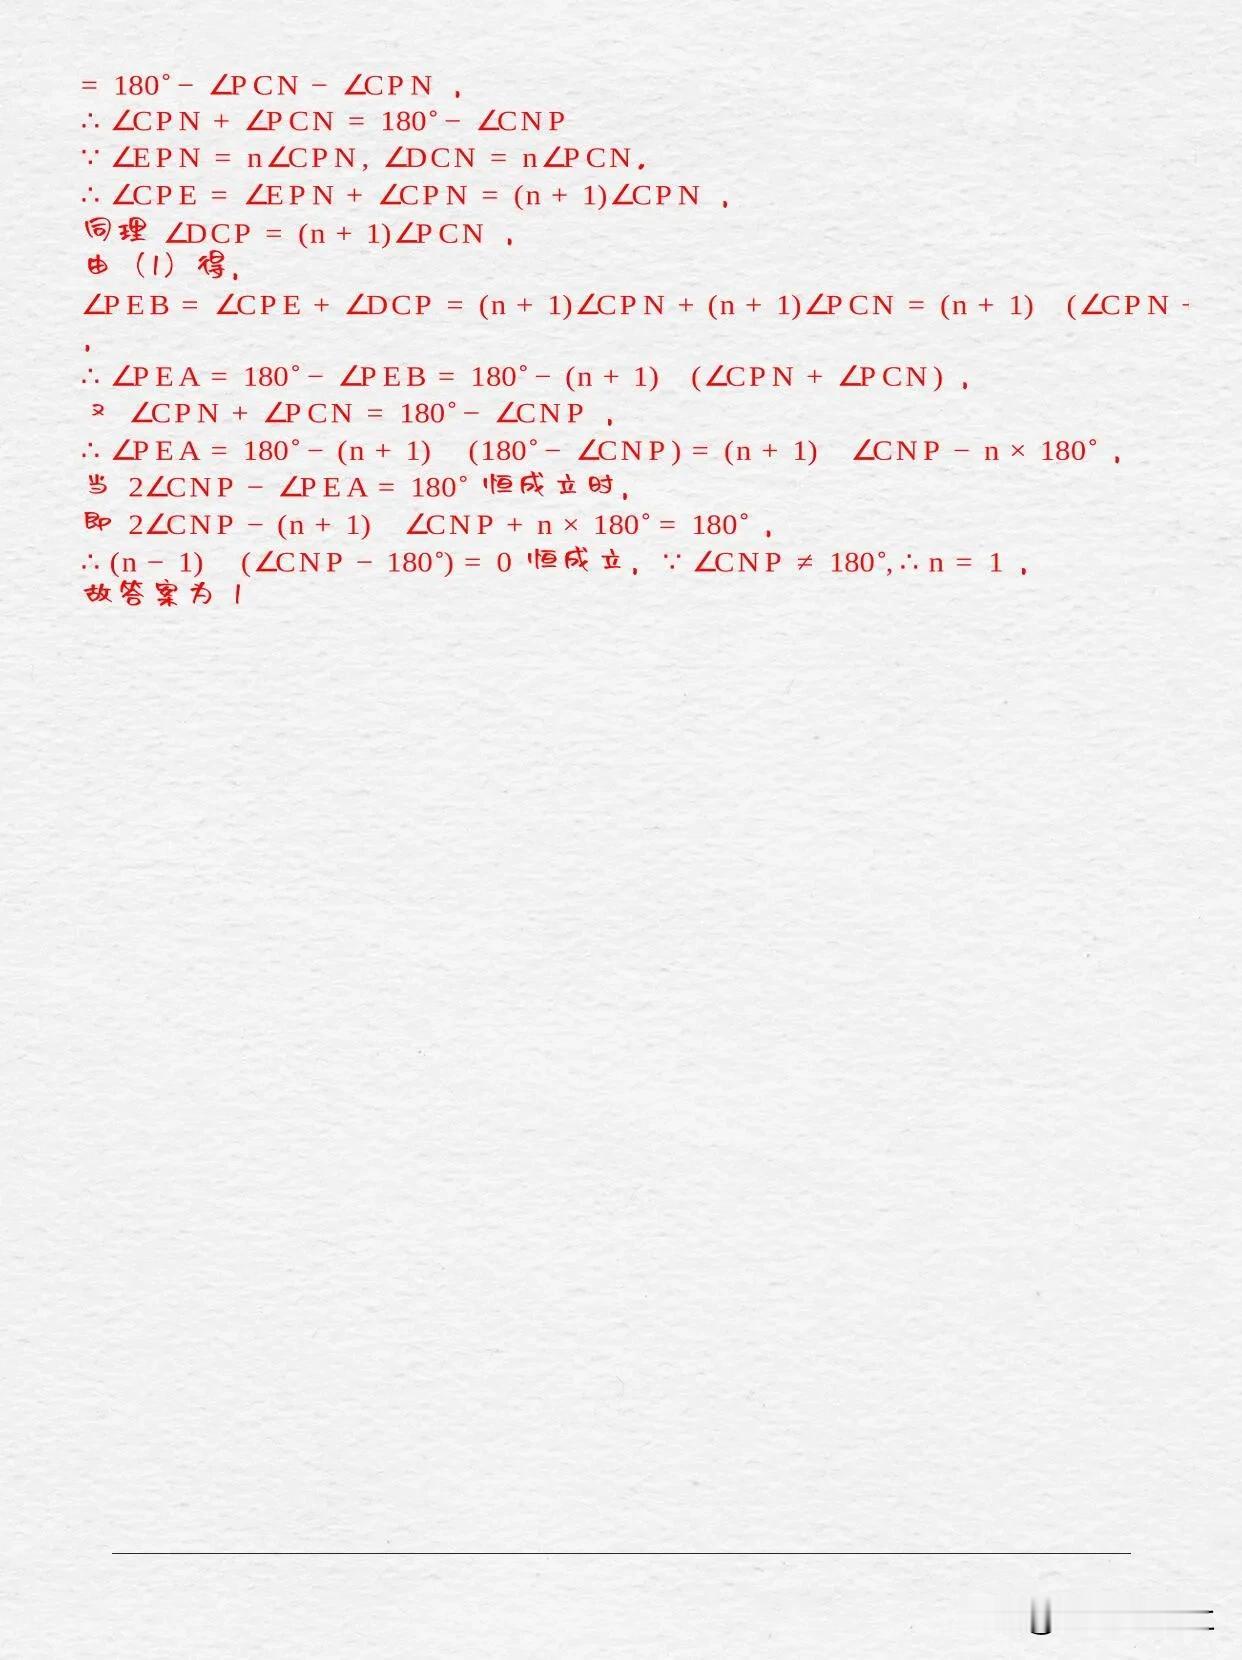 = 180°− ∠PCN − ∠CPN ，
∴ ∠CPN + ∠PCN = 180°− ∠CNP
∵ ∠EPN = n∠CPN, ∠DCN = n∠PCN，
∴ ∠CPE = ∠EPN + ∠CPN = (n + 1)∠CPN ，
同理 ∠DCP = (n + 1)∠PCN ，
由（1）得，
∠PEB = ∠CPE + ∠DCP = (n + 1)∠CPN + (n + 1)∠PCN = (n + 1) (∠CPN -
，
∴ ∠PEA = 180°− ∠PEB = 180°− (n + 1) (∠CPN + ∠PCN) ，
又 ∠CPN + ∠PCN = 180°− ∠CNP ，
∴ ∠PEA = 180°− (n + 1) (180°− ∠CNP) = (n + 1) ∠CNP − n × 180° ，
当 2∠CNP − ∠PEA = 180° 恒成立时，
即 2∠CNP − (n + 1) ∠CNP + n × 180° = 180° ，
∴ (n − 1) (∠CNP − 180°) = 0 恒成立，∵ ∠CNP ≠ 180°, ∴ n = 1 ，
故答案为 1